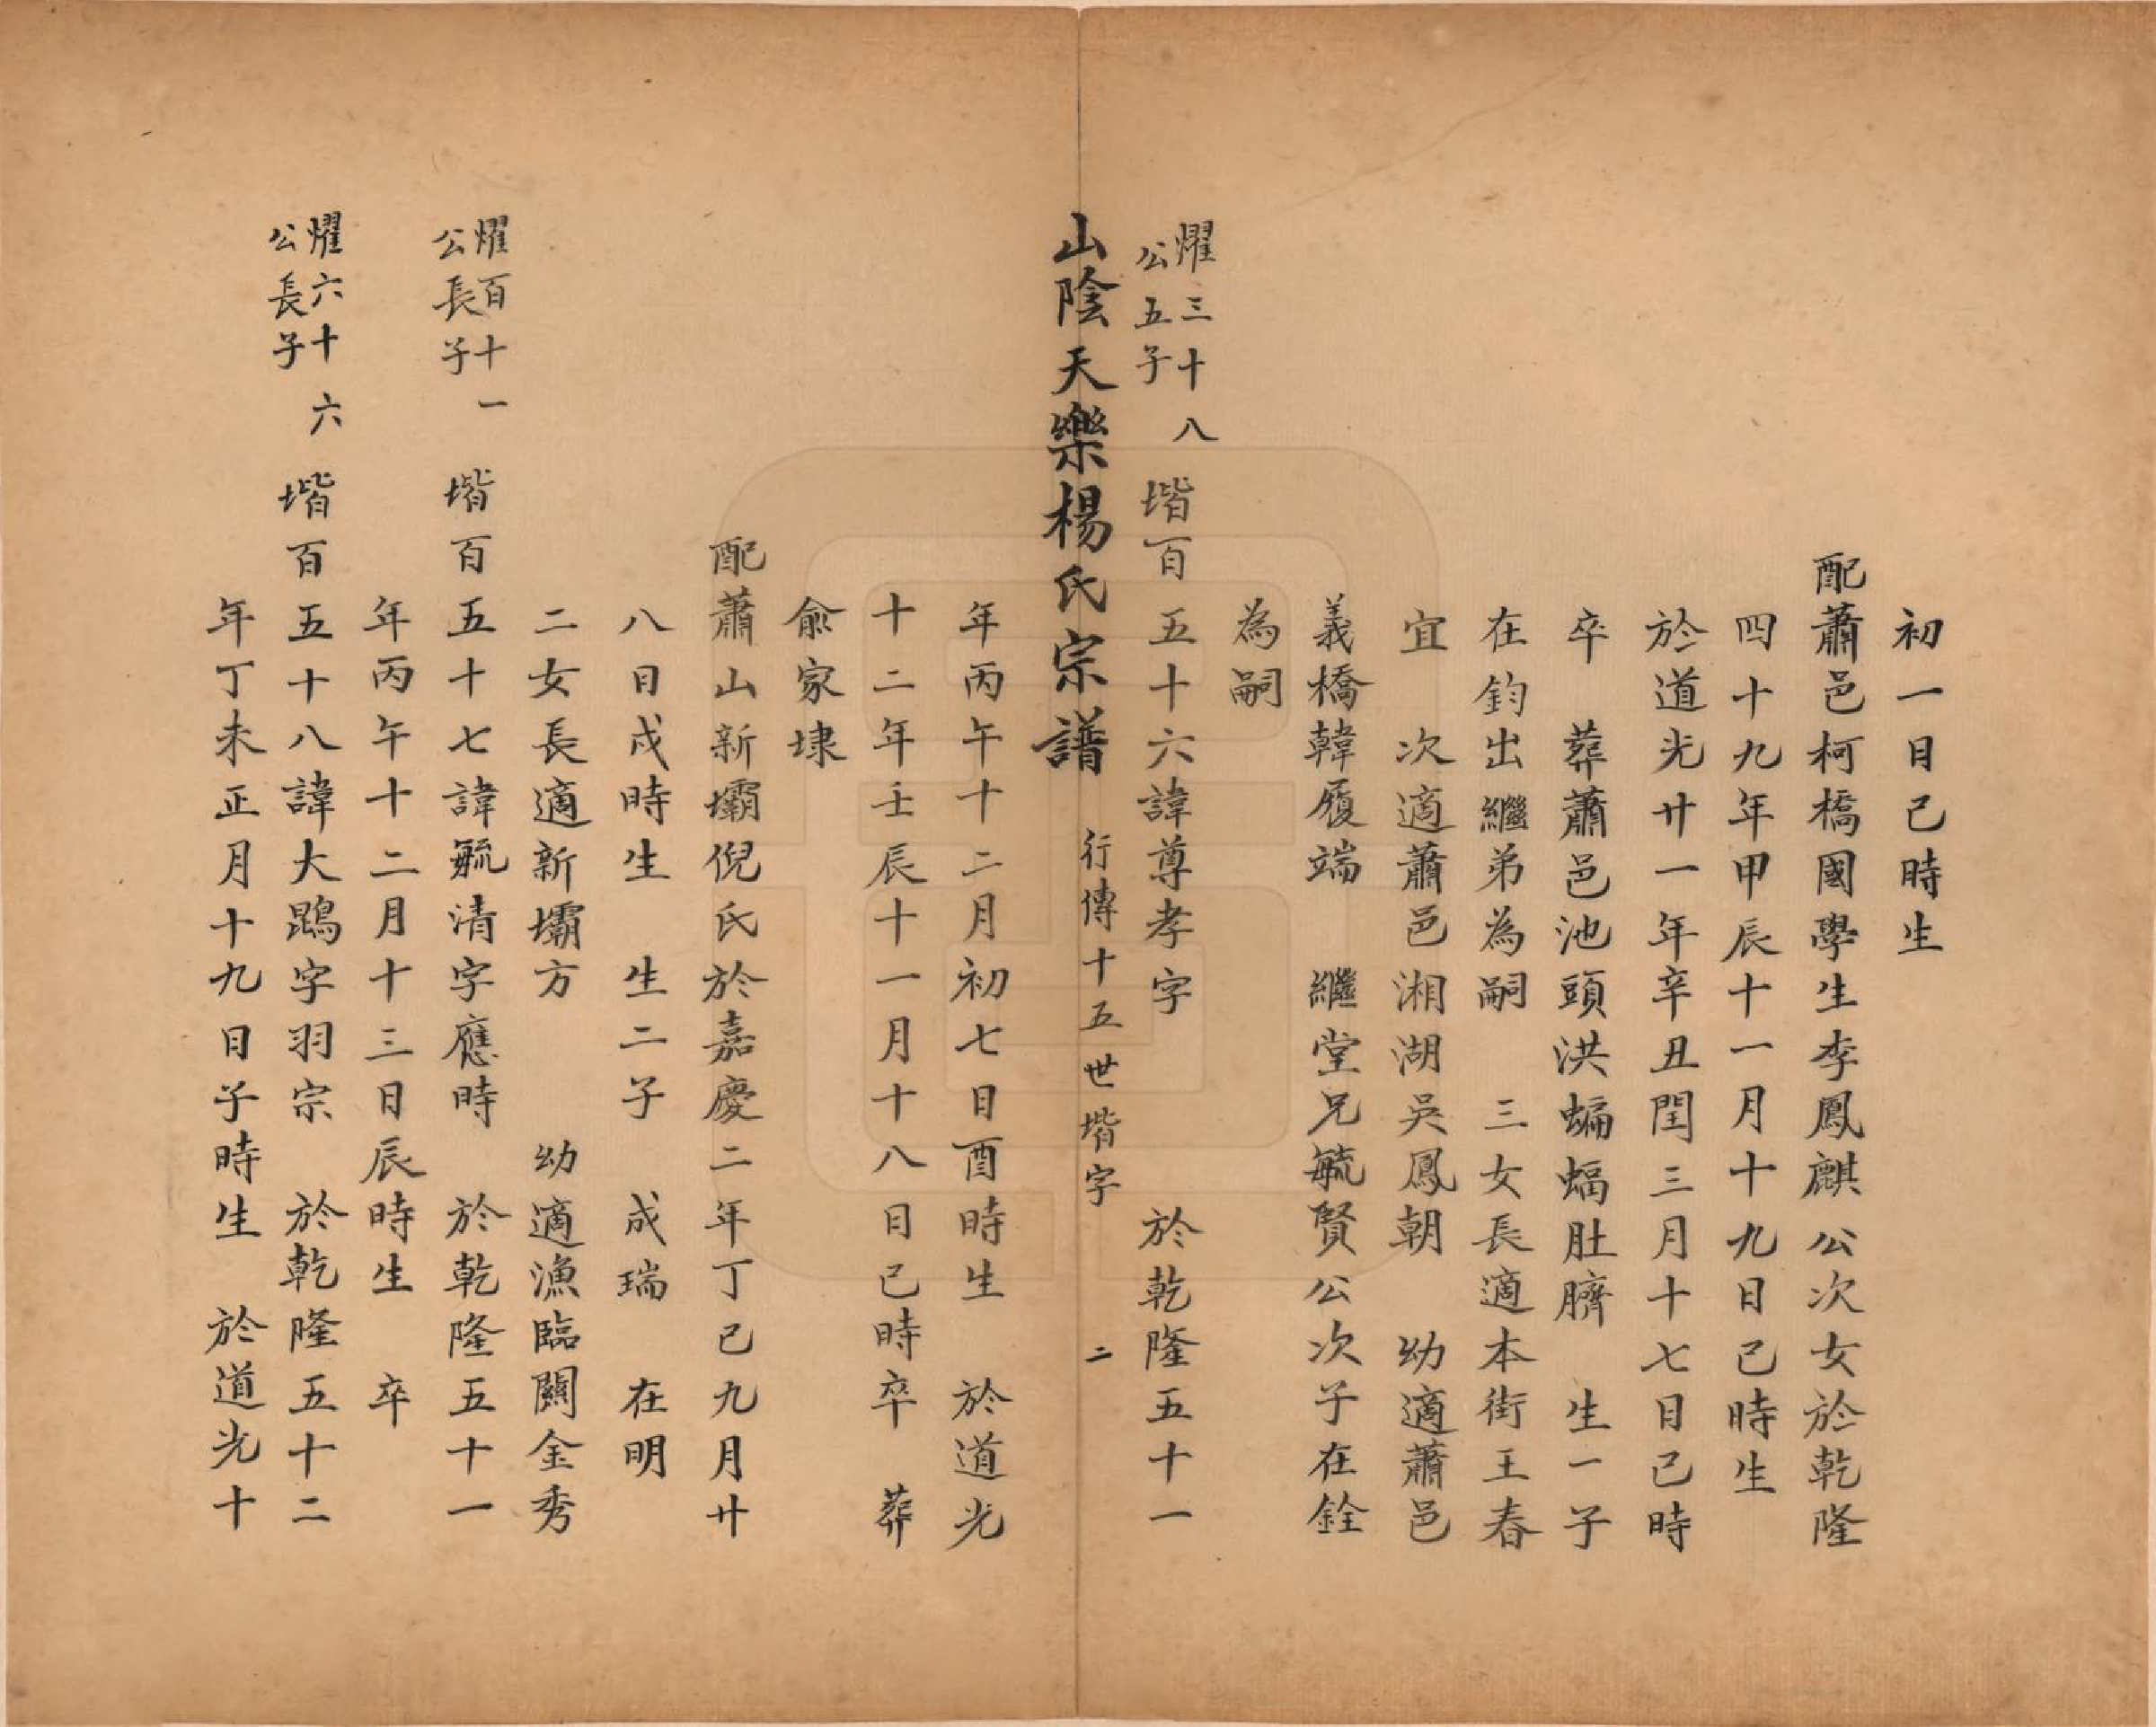 初一日己時生
配蕭邑柯橋國學生李鳳麒公次女於乾隆
四十九年甲辰十一月十九日己時生
於道光廿一年辛丑閏三月十七日己時
卒　葬蕭邑池頭洪蝙蝠肚臍　生一子
在鈞出繼弟為嗣　三女長適本街王春
宜　次適蕭邑湘湖吳鳳朝　幼適蕭邑
義橋韓履端　繼堂兄毓賢公次子在銓
為嗣
耀三十八
公五子
堦百五十六諱尊孝字　於乾隆五十一
山陰天樂楊氏宗譜　行傳十五世堦字　二
年丙午十二月初七日酉時生　於道光
十二年壬辰十一月十八日己時卒　葬
俞家埭
配蕭山新壩倪氏於嘉慶二年丁己九月廿
八日戍時生　生二子　成瑞　在明
二女長適新壩方　幼適漁臨關金秀
耀百十一
公長子
堦百五十七諱毓清字應時　於乾隆五十一
年丙午十二月十三日辰時生　卒
耀六十六
公長子
堦百五十八諱大鵾字羽宗　於乾隆五十二
年丁未正月十九日子時生　於道光十